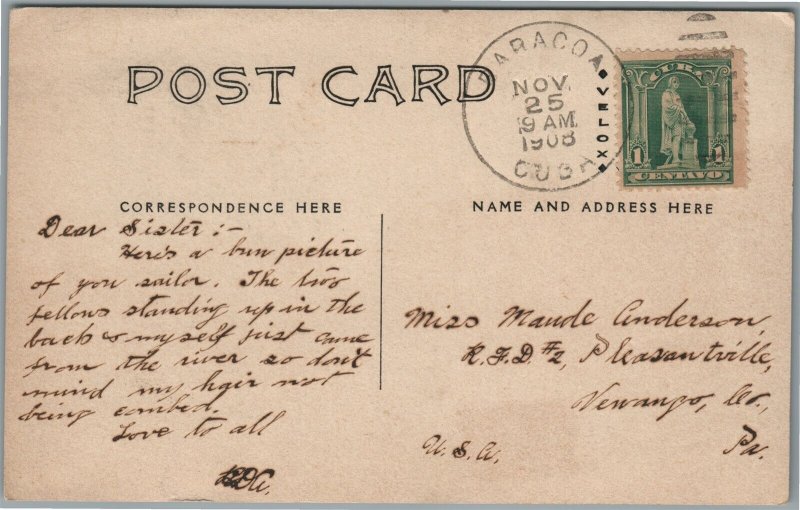 POST CARD
BARACOA
NOV.
25
9 AM
1908
CUBA
VELOX
CUBA
1 1
CENTAVO
CORRESPONDENCE HERE
NAME AND ADDRESS HERE
Dear Sister :-
Here's a bum picture
of you sailor. The two
fellows standing up in the
back & myself just came
from the river so don't
mind my hair not
being combed.
Love to all
Miss Maude Anderson,
R.F.D. #2, Pleasantville,
Venango, Co.,
U.S.A. Pa.